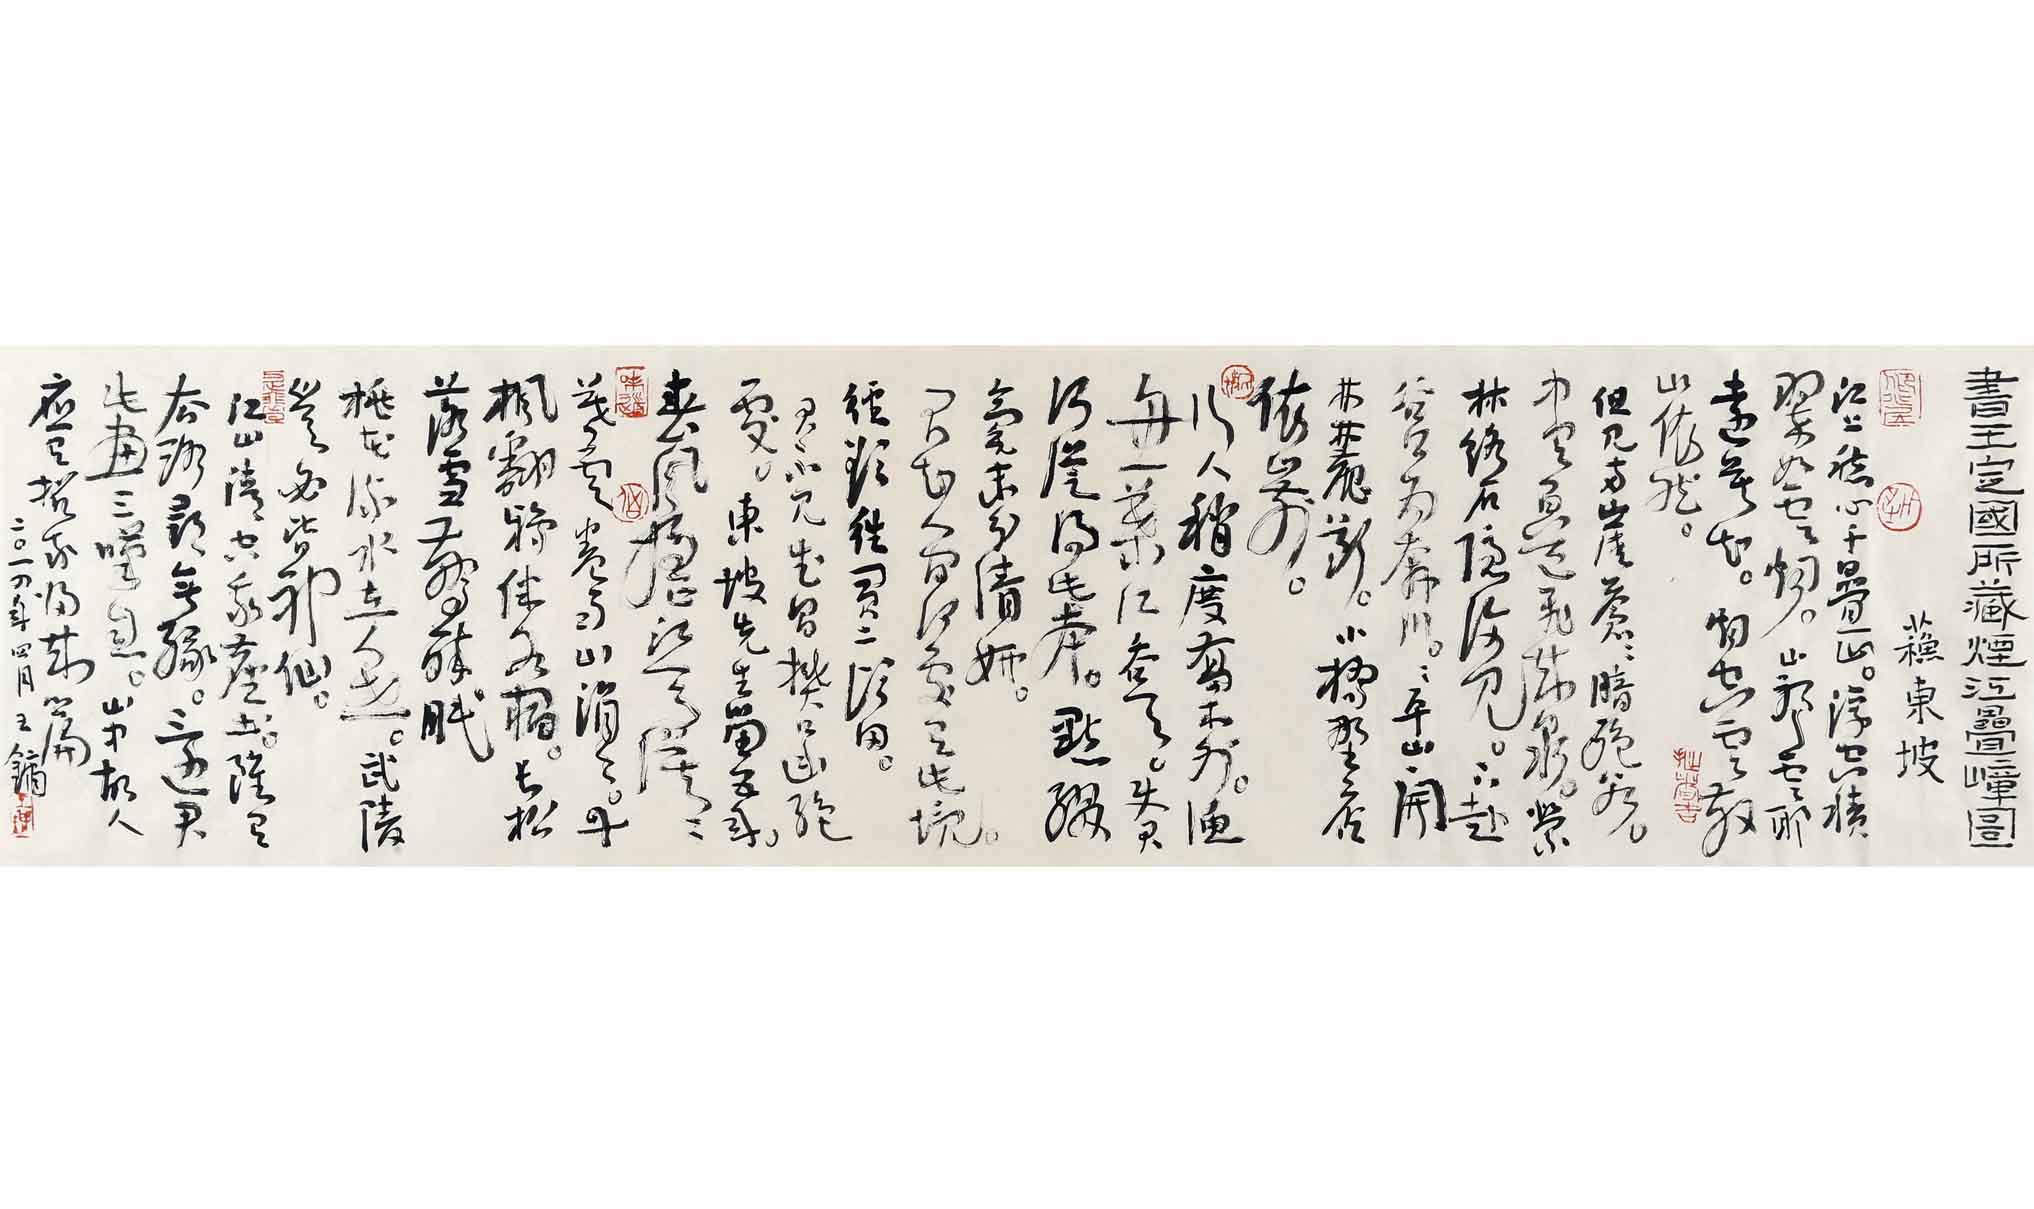 書王定國所藏煙江疊嶂圖
蘇東坡
江上愁心千疊山。浮空積
翠如雲烟。山耶雲耶
遠莫知。烟空雲散
山依然。
但見兩崖蒼〻暗絕谷。
中有百道飛來泉。縈
林絡石隱復見。下赴
谷口為奔川。〻平山開
林麓斷。小橋野店
依山前。
行人稍度喬木外。漁
舟一葉江吞天。使君
何從得此本。點綴
毫末分清妍。
不知人間何處有此境。
徑欲往買二頃田。
君不見武昌樊口幽絕
處。東坡先生留五年。
春風搖江天漠〻
暮雲卷雨山娟〻。丹
楓翻鴉伴水宿。長松
落雪驚醉眠
桃花流水在人世。武陵
豈必皆神仙。
江山清空我塵土。雖有
去路尋無緣。還君
此畫三嘆息。山中故人
應有招我歸來篇
年四月 王鏞